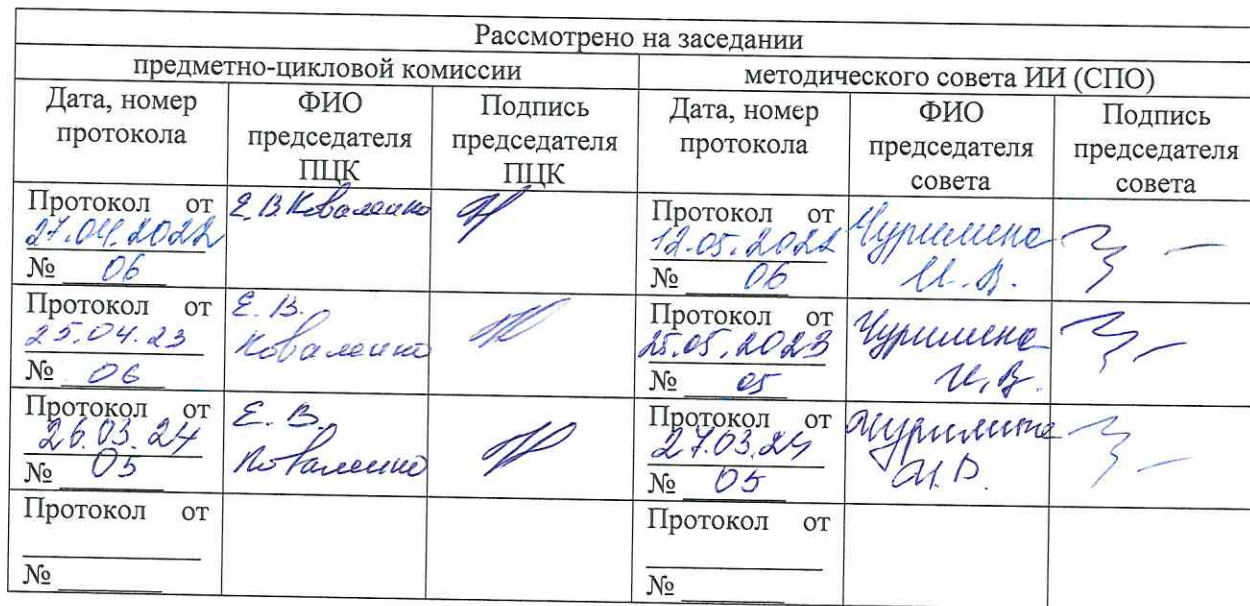 Рассмотрено на заседании
предметно-цикловой комиссии
методического совета ИИ (СПО)
Дата, номер
протокола
ФИО
председателя
ПЦК
Подпись
председателя
ПЦК
Дата, номер
протокола
ФИО
председателя
совета
Подпись
председателя
совета
Протокол от
27.04.2022
№ 06
Е.В. Коваленко
Протокол от
12.05.2022
№ 06
Чурилина
И.В.
Протокол от
25.04.23
№ 06
Е.В.
Коваленко
Протокол от
25.05.2023
№ 05
Чурилина
И.В.
Протокол от
26.03.24
№ 05
Е.В.
Коваленко
Протокол от
27.03.24
№ 05
Чурилина
И.В.
Протокол от
№
Протокол от
№